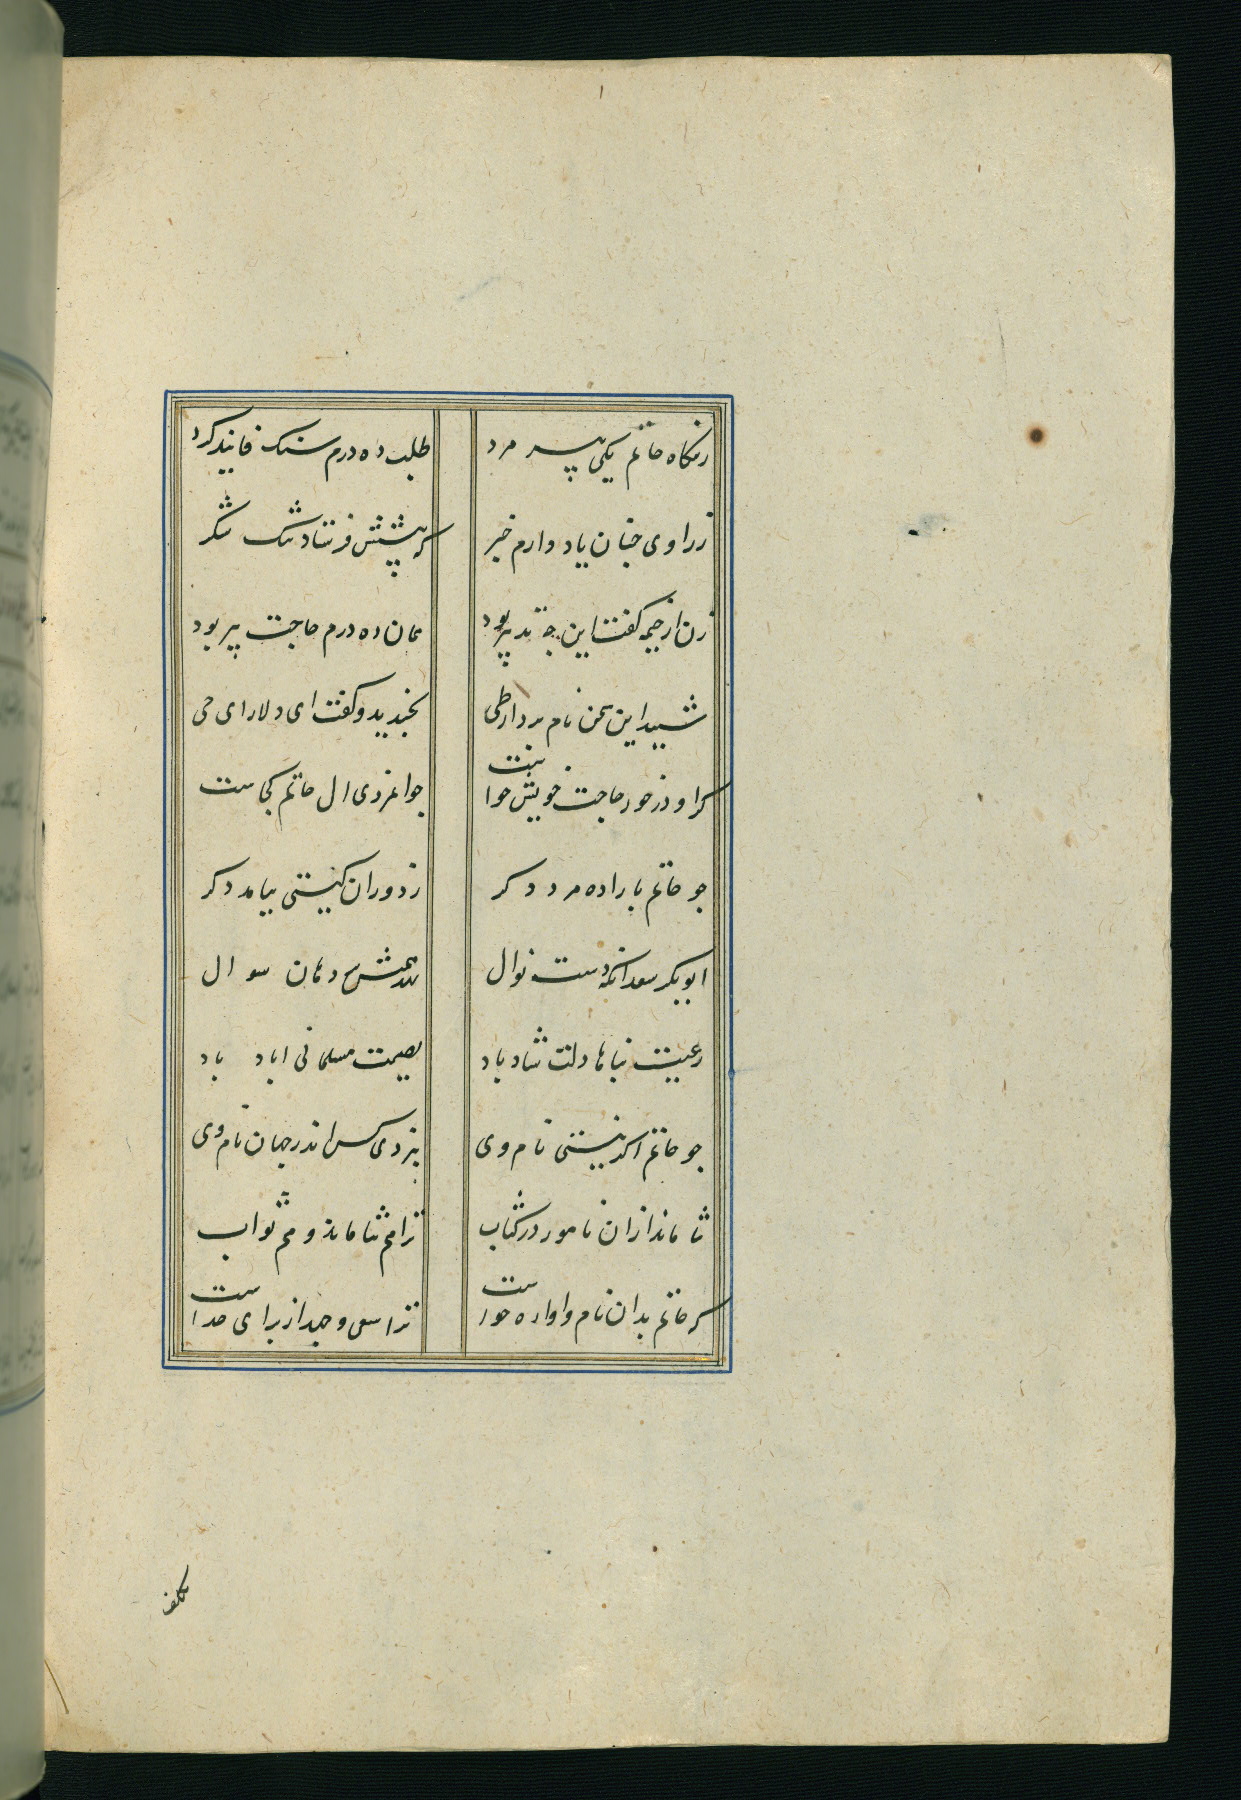 زبنگاه حاتم یکی پیر مرد
طلب ده درم سنک فانید کرد
ز راوی جنان یاد دارم خبر
که پیشش فرستاد تنک شکر
زن از خیمه کفت این جه تدبیر بود
همان ده درم حاجت پیر بود
شنید این سخن نام بردار طی
بخندید و کفت ای دلارای حی
کر او در خور حاجت خویش خواست
جوانمردی ال حاتم کجاست
جو حاتم بازاده مرد دکر
ز دوران کیتی بیامد دکر
ابوبکر سعد انکه دست نوال
نهد همتش بر دهان سوال
رعیت بناها دلت شاد باد
بسعیت مسلمانی اباد باد
جو حاتم اکر نیستی نام وی
نبردی کس اندر جهان نام وی
ثنا ماند ازان نامور در کتاب
ترا هم ثنا ماند و هم ثواب
که حاتم بدان نام و اوازه خواست
ترا سعی و جهد از برای خداست
تکلف